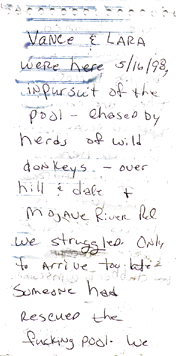 VANCE & LARA
WERE HERE 5/16/98,
IN PURSUIT OF the
POOL - CHASED by
herds of wild
donkeys. - over
hill & dale +
MOJAVE RIVER Rd
we struggled. Only
to ARRIVE too late
Someone had
Rescued the
fucking pool. We